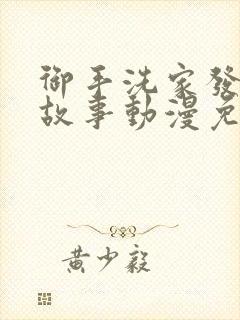 御手洗家發
故事動漫免
黃少毅